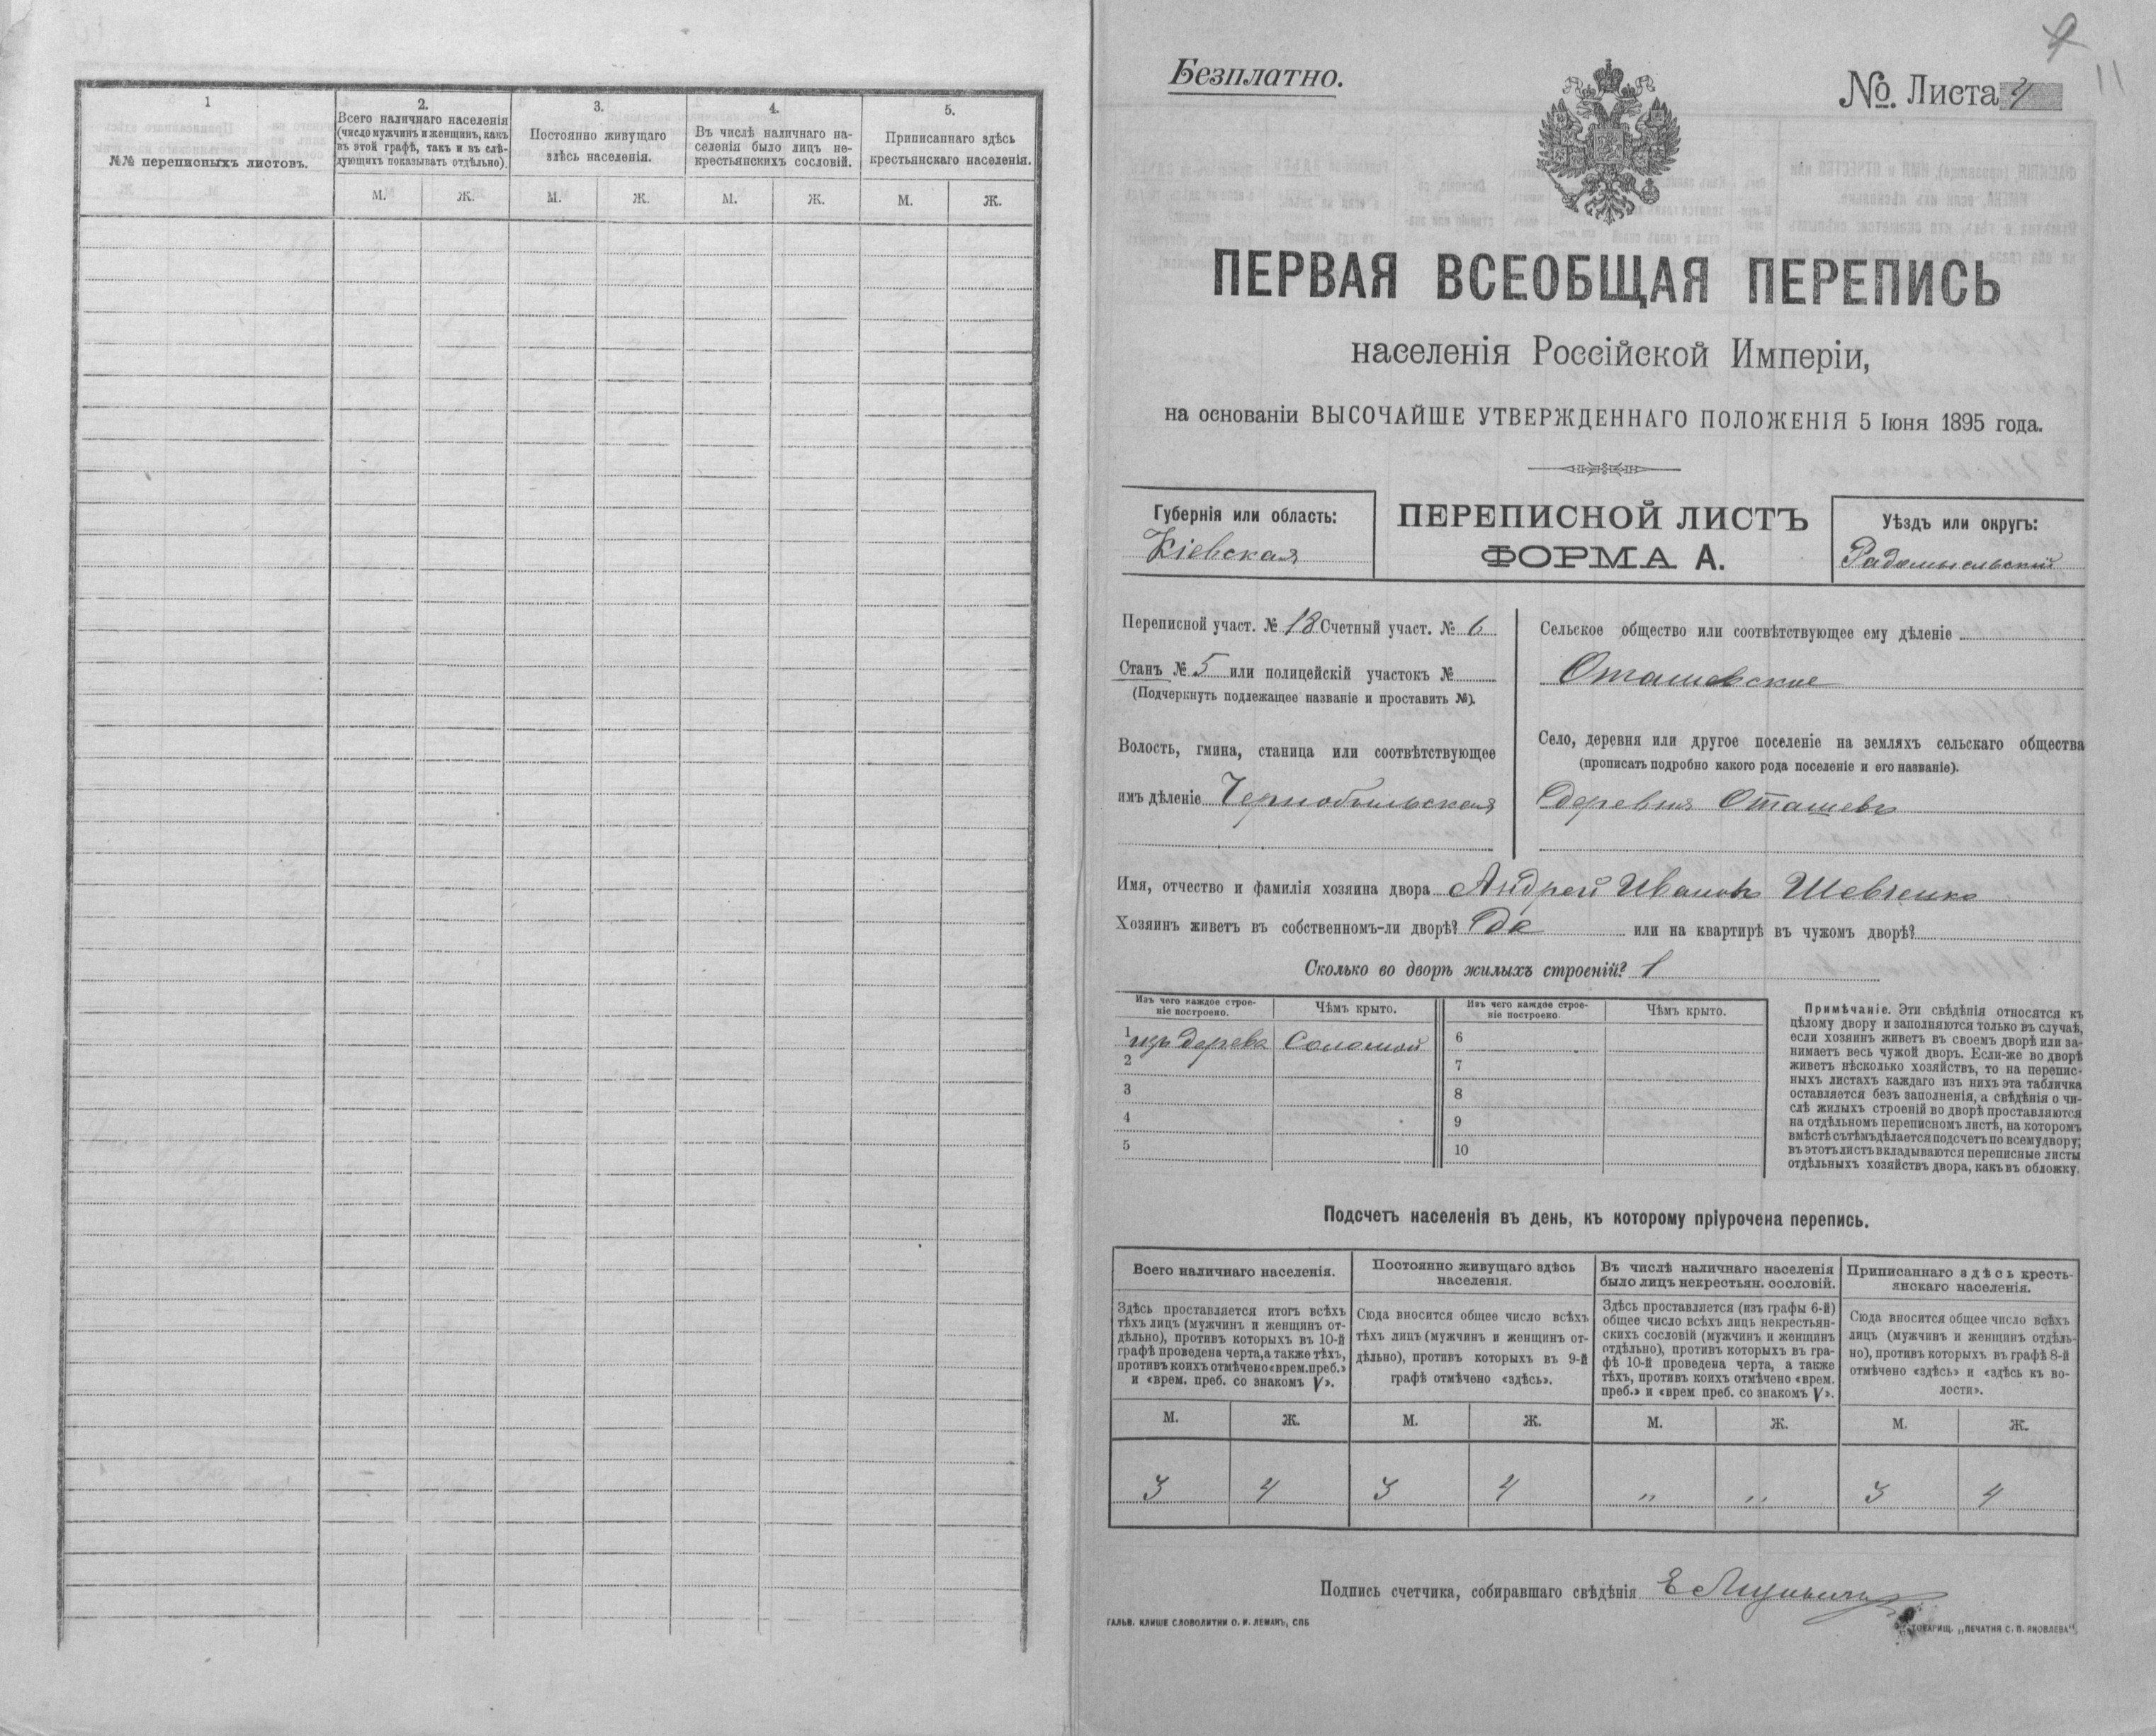 1
2.
3.
4.
5.
№№ переписныхъ листовъ.
Всего наличнаго населенія
(число мужчинъ и женщинъ, какъ
въ этой графѣ, такъ и въ слѣ-
дующихъ показывать отдѣльно).
Постоянно живущаго
здѣсь населенія.
Въ числѣ наличнаго на-
селенія было лицъ не-
крестьянскихъ сословій.
Приписаннаго здѣсь
крестьянскаго населенія.
М. Ж. М. Ж. М. Ж. М. Ж.
9
11
Безплатно.
№ Листа 4
ПЕРВАЯ ВСЕОБЩАЯ ПЕРЕПИСЬ
населенія Россійской Имперіи,
на основаніи ВЫСОЧАЙШЕ УТВЕРЖДЕННАГО ПОЛОЖЕНІЯ 5 Іюня 1895 года.
Губернія или область:
Кіевская
ПЕРЕПИСНОЙ ЛИСТЪ
ФОРМА А.
Уѣздъ или округъ:
Радомысльскій
Переписной участ. № 18 Счетный участ. № 6
Станъ № 5 или полицейскій участокъ №
(Подчеркнуть подлежащее названіе и проставить №).
Волость, гмина, станица или соотвѣтствующее
имъ дѣленіе Чернобыльская
Сельское общество или соотвѣтствующее ему дѣленіе
Оташевское
Село, деревня или другое поселеніе на земляхъ сельскаго общества
(прописать подробно какого рода поселеніе и его названіе).
деревня Оташевъ
Имя, отчество и фамилія хозяина двора Андрей Ивановъ Шевченко
Хозяинъ живетъ въ собственномъ-ли дворѣ? Да или на квартирѣ въ чужомъ дворѣ?
Сколько во дворѣ жилыхъ строеній? 1
Изъ чего каждое строе-
ніе построено.
Чѣмъ крыто.
Изъ чего каждое строе-
ніе построено.
Чѣмъ крыто.
1 изъ дерева Соломой
2
3
4
5
6
7
8
9
10
Примѣчаніе. Эти свѣдѣнія относятся къ
цѣлому двору и заполняются только въ случаѣ,
если хозяинъ живетъ въ своемъ дворѣ или за-
нимаетъ весь чужой дворъ. Если-же во дворѣ
живетъ нѣсколько хозяйствъ, то на перепис-
ныхъ листахъ каждаго изъ нихъ эта табличка
оставляется безъ заполненія, а свѣдѣнія о чи-
слѣ жилыхъ строеній во дворѣ проставляются
на отдѣльномъ переписномъ листѣ, на которомъ
вмѣстѣ съ тѣмъ дѣлается подсчетъ по всему двору;
въ этотъ листъ вкладываются переписные листы
отдѣльныхъ хозяйствъ двора, какъ въ обложку.
Подсчетъ населенія въ день, къ которому пріурочена перепись.
Всего наличнаго населенія.
Здѣсь проставляется итогъ всѣхъ
тѣхъ лицъ (мужчинъ и женщинъ от-
дѣльно), противъ которыхъ въ 10-й
графѣ проведена черта, а также тѣхъ,
противъ коихъ отмѣчено «врем. преб.»
и «врем. преб. со знакомъ V».
Постоянно живущаго здѣсь
населенія.
Сюда вносится общее число всѣхъ
тѣхъ лицъ (мужчинъ и женщинъ от-
дѣльно), противъ которыхъ въ 9-й
графѣ отмѣчено «здѣсь».
Въ числѣ наличнаго населенія
было лицъ некрестьян. сословій.
Здѣсь проставляется (изъ графы 6-й)
общее число всѣхъ лицъ некрестьян-
скихъ сословій (мужчинъ и женщинъ
отдѣльно), противъ которыхъ въ гра-
фѣ 10-й проведена черта, а также
тѣхъ, противъ коихъ отмѣчено «врем.
преб.» и «врем преб. со знакомъ V».
Приписаннаго здѣсь кресть-
янскаго населенія.
Сюда вносится общее число всѣхъ
лицъ (мужчинъ и женщинъ отдѣль-
но), противъ которыхъ въ графѣ 8-й
отмѣчено «здѣсь» и «здѣсь къ во-
лости».
М. Ж. М. Ж. М. Ж. М. Ж.
3 4 3 4 „ „ 3 4
Подпись счетчика, собиравшаго свѣдѣнія
ГАЛЬВ. КЛИШЕ СЛОВОЛИТНИ О. И. ЛЕМАНЪ, СПБ
ТОВАРИЩ. „ПЕЧАТНЯ С. П. ЯКОВЛЕВА“.